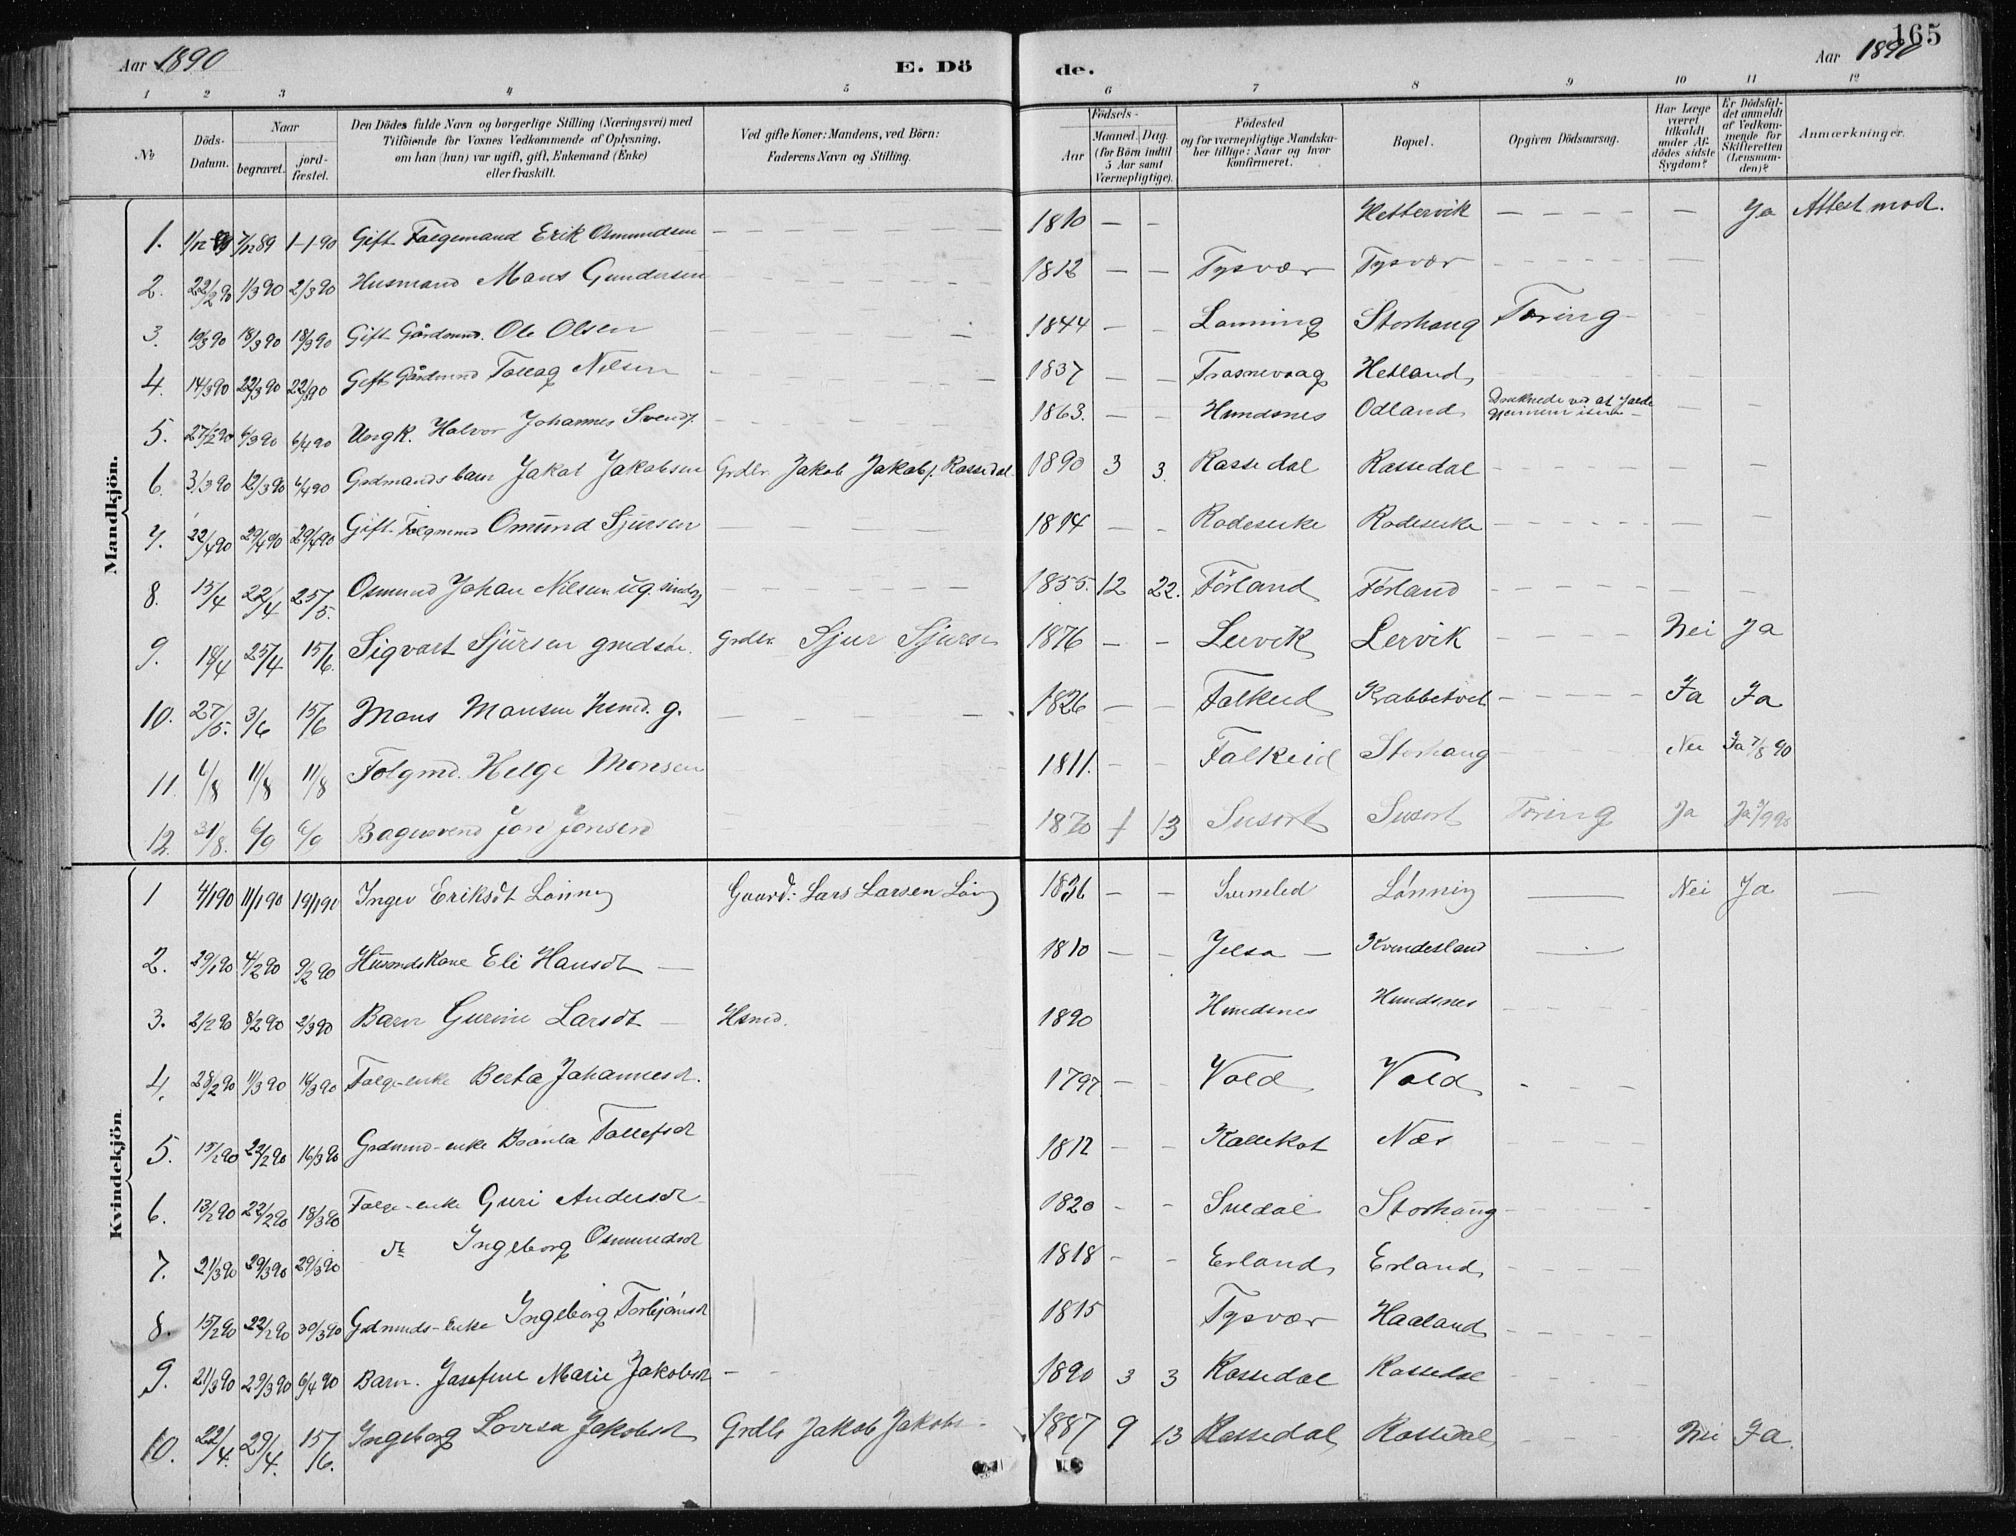 165
Aar 1890
E. Dö
de.
Aar 1890
1 2 3 4 5 6 7 8 9 10 11 12
№
Döds-Datum.
Naar
begravet.
jord-fæstet.
Den Dödes fulde Navn og borgerlige Stilling (Næringsvei) med
Tilföiende for Voxnes Vedkommende af Oplysning,
om han (hun) var ugift, gift, Enkemand (Enke)
eller fraskilt.
Ved gifte Koner: Mandens, ved Börn:
Faderens Navn og Stilling.
Födsels-
Aar
Maaned. Dag.
(for Börn indtil 5 Aar samt Værnepligtige).
Födested
og for værnepligtige Mandska-
ber tillige: Naar og hvor
konfirmeret.
Bopæl.
Opgiven Dödsaarsag.
Har Læge været tilkaldt under Af-dödes sidste Sygdom?
Er Dödsfal-det anmeldt af Vedkom-mende for Skifteretten (Lensman-den)?
Anmærkninger.
Mandkjön.
1. 1/12 89 7/12 89 1-1 90 Gift Folgemand Erik Osmundsen — 1810 — — Hettervik — — Ja Attest mod.
2. 22/2 90 1/3 90 2/3 90 Husmand Mans Gundersen — 1812 — — Tysvær Tysvær
3. 10/3 90 18/3 90 18/3 90 Gift Gårdmd. Ole Olsen — 1844 — — Lønning Storhaug Tæring
4. 14/3 90 22/3 90 22/3 90 Gift Gårdmnd Tollag Nilsen — 1837 — — Hetland
5. 27/2 90 6/3 90 6/4 90 Ungk. Halvor Johannes Svends. — 1863. — — Hundsnes Odland Druknede ved at falde gjennem isen
6. 3/3 90 12/3 90 6/4 90 Grdmands barn Jakob Jakobsen Grdbr. Jakob Jakobs. Rossedal 1890 3 3. Rossedal Rossedal
7. 22/4 90 29/4 90 29/4 90 Gift Folgmnd Omund Sjursen — 1814 — — Rodeseike Rodeseike
8. 15/4 22/4 25/5. Osmund Johan Nilsen ug. — 1855. 12 22. Førland Førland
9. 18/4 25/4 15/6. Sigvart Sjursen gmdsøn. Grdbr. Sjur Sjursen 1876 — — Lervik Lervik — Nei Ja
10. 27/5. 3/6 15/6 Mans Mansen husmd. g. — 1826 — — Falkeid Krabbetveit — Ja Ja
11. 6/8 11/8 11/8 Folgmd. Helge Monsen 1811. — — Falkeid Storhaug — Nei Ja 7/8 90
12. 31/8. 6/9 6/9 Bagersvend Jon Jonsen 1870 1 13 Susort Susort Tæring Ja Ja /9 90
Kvindekjön
1 4/1 90 11/1 90 19/1 90 Inger Eriksdt Lønning Gaard: Lars Larsen Løng 1836 — — Lønning — Nei Ja —
2. 29/1 90 4/2 90 9/2 90 Husmdskone Eli Hansdt — 1810 — Jelsa — Kvindesland —
3. 2/2 90 8/2 90 2/3 90 Barn Gurine Larsdt — Hsmd. 1890 Hundsnes Hundsnes
4. 28/2 90 11/3 90 16/3 90 Folge-enke Berta Johannesdt. 1797 — — Vold Vold
5. 15/2 90 22/2 90 16/3 90 Grdmnd-enke Brønla Tollefsdt 1812 — — Kallekot Næs
6. 13/2 90 22/2 90 18/3 90 Folge-enke Guri Andersdt 1820 — — Svedal Storhaug
7. 21/3 90 29/3 90 29/3 90 do Ingeborg Osmundsdt 1818 — — Erland Erland
8. 15/2 90 22/2 90 30/3 90 Grdmnds-Enke Ingeborg Torbjörnsdt 1815 Tysvær Haaland
9. 21/3 90 29/3 90 6/4 90 Barn. Josefine Marie Jakobsdt — 1890 3 3 Rossedal Rossedal
10. 22/4. 29/4. 15/6. Ingeborg Lovisa Jakobsdt Grdbr Jakob Jakobs. 1887 9 13 Rossedal Rossedal — Nei Ja.